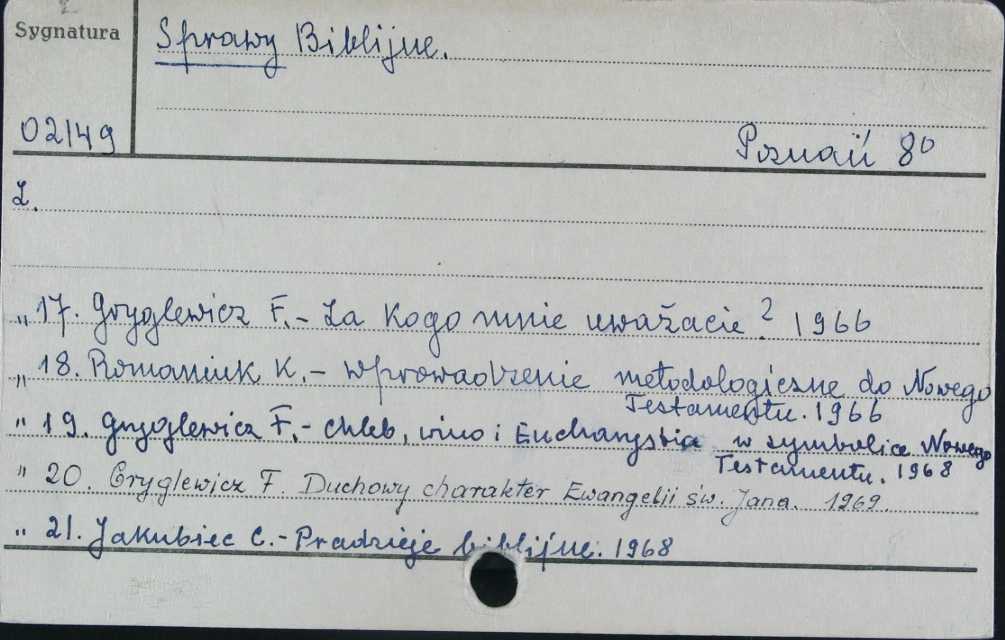 Sygnatura
Sprawy Biblijne.
02149
Poznań 8⁰
Z.
„ 17. Gryglewicz F. - Za Kogo mnie uważacie? 1966
„ 18. Romaniuk K. - Wprowadzenie metodologiczne do Nowego
Testamentu. 1966
„ 19. Gryglewicz F. - Chleb, wino i Eucharystia w symbolice Nowego
Testamentu. 1968
„ 20. Gryglewicz F. Duchowy charakter Ewangelii św. Jana. 1969.
„ 21. Jakubiec C. - Pradzieje biblijne. 1968